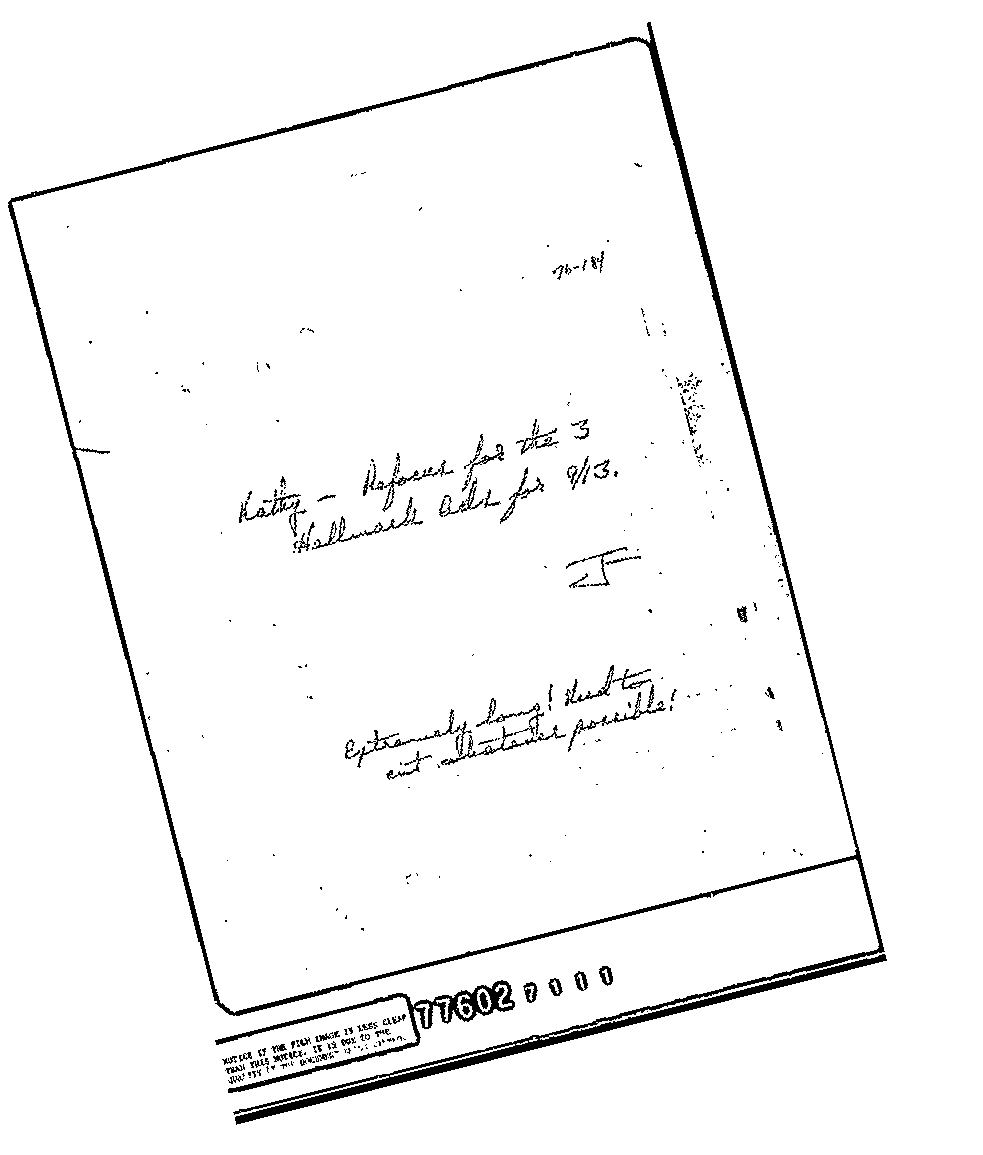 76-184
Kathy - Refocus for the 3
Hallmark Ads for 9/13.
Extremely long! Need to
cut whatever possible!
776027000
NOTICE IF THE FILM IMAGE IS LESS CLEAR
THAN THIS NOTICE, IT IS DUE TO THE
QUALITY OF THE DOCUMENT